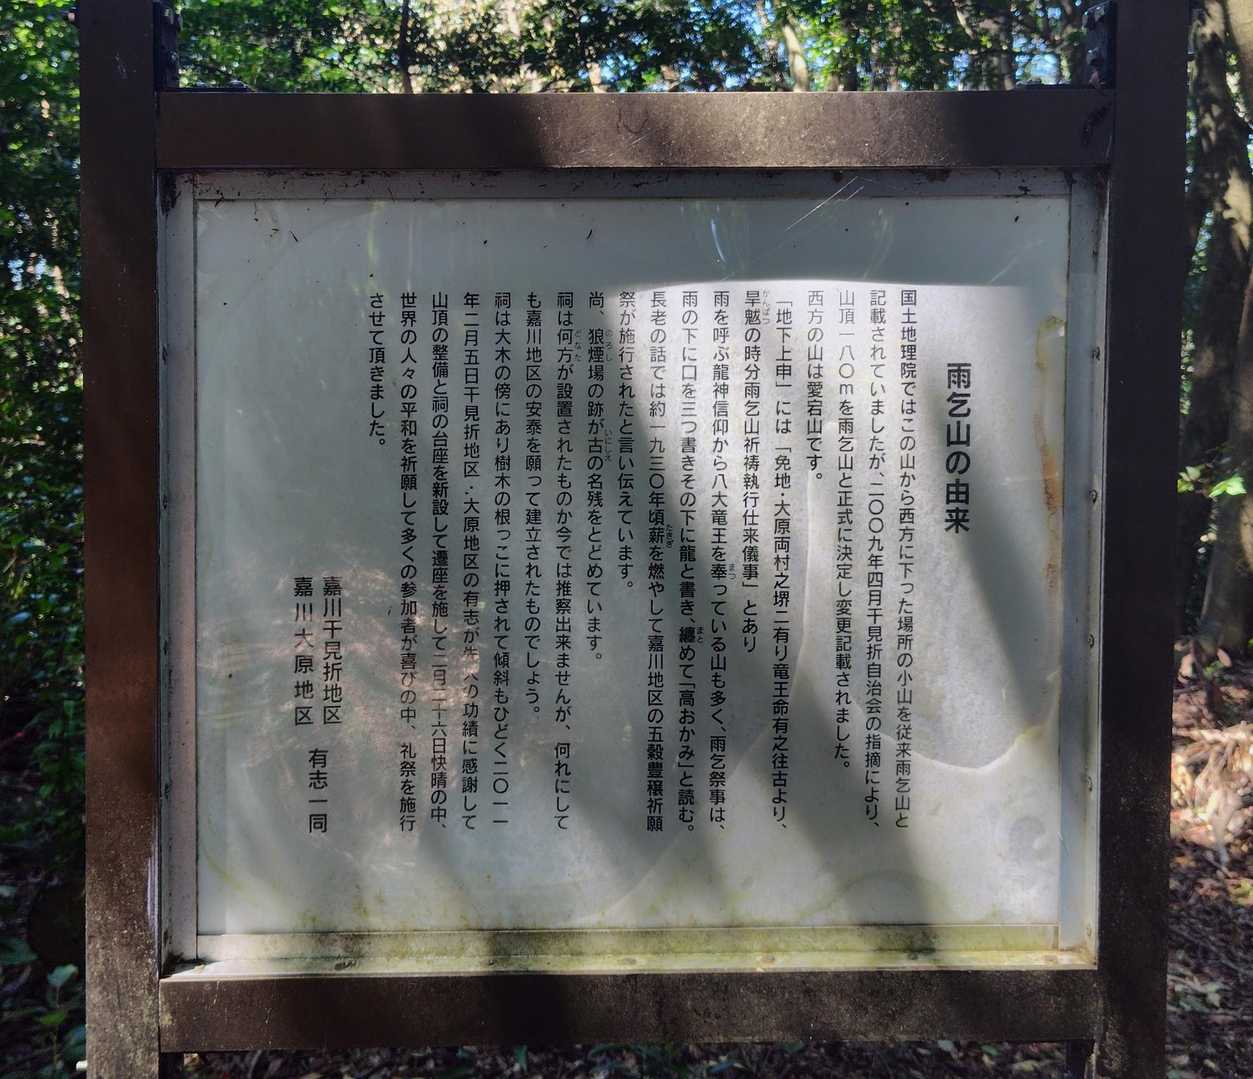 雨乞山の由来
国土地理院ではこの山から西方に下った場所の小山を従来雨乞山と
記載されていましたが、二〇〇九年四月干見折自治会の指摘により、
山頂一八〇mを雨乞山と正式に決定し変更記載されました。
西方の山は愛宕山です。
「地下上申」には「免地・大原両村之堺ニ有り竜王命有之往古より、
旱魃の時分雨乞山祈祷執行仕来儀事」とあり
雨を呼ぶ龍神信仰から八大竜王を奉っている山も多く、雨乞祭事は、
雨の下に口を三つ書きその下に龍と書き、纏めて「高おかみ」と読む。
長老の話では約一九三〇年頃薪を燃やして嘉川地区の五穀豊穣祈願
祭が施行されたと言い伝えています。
尚、狼煙場の跡が古の名残をとどめています。
祠は何方が設置されたものか今では推察出来ませんが、何れにして
も嘉川地区の安泰を願って建立されたものでしょう。
祠は大木の傍にあり樹木の根っこに押されて傾斜もひどく二〇一一
年二月五日干見折地区・大原地区の有志が先人の功績に感謝して
山頂の整備と祠の台座を新設して遷座を施して二月二十六日快晴の中、
世界の人々の平和を祈願して多くの参加者が喜びの中、礼祭を施行
させて頂きました。
嘉川干見折地区
嘉川大原地区
有志一同